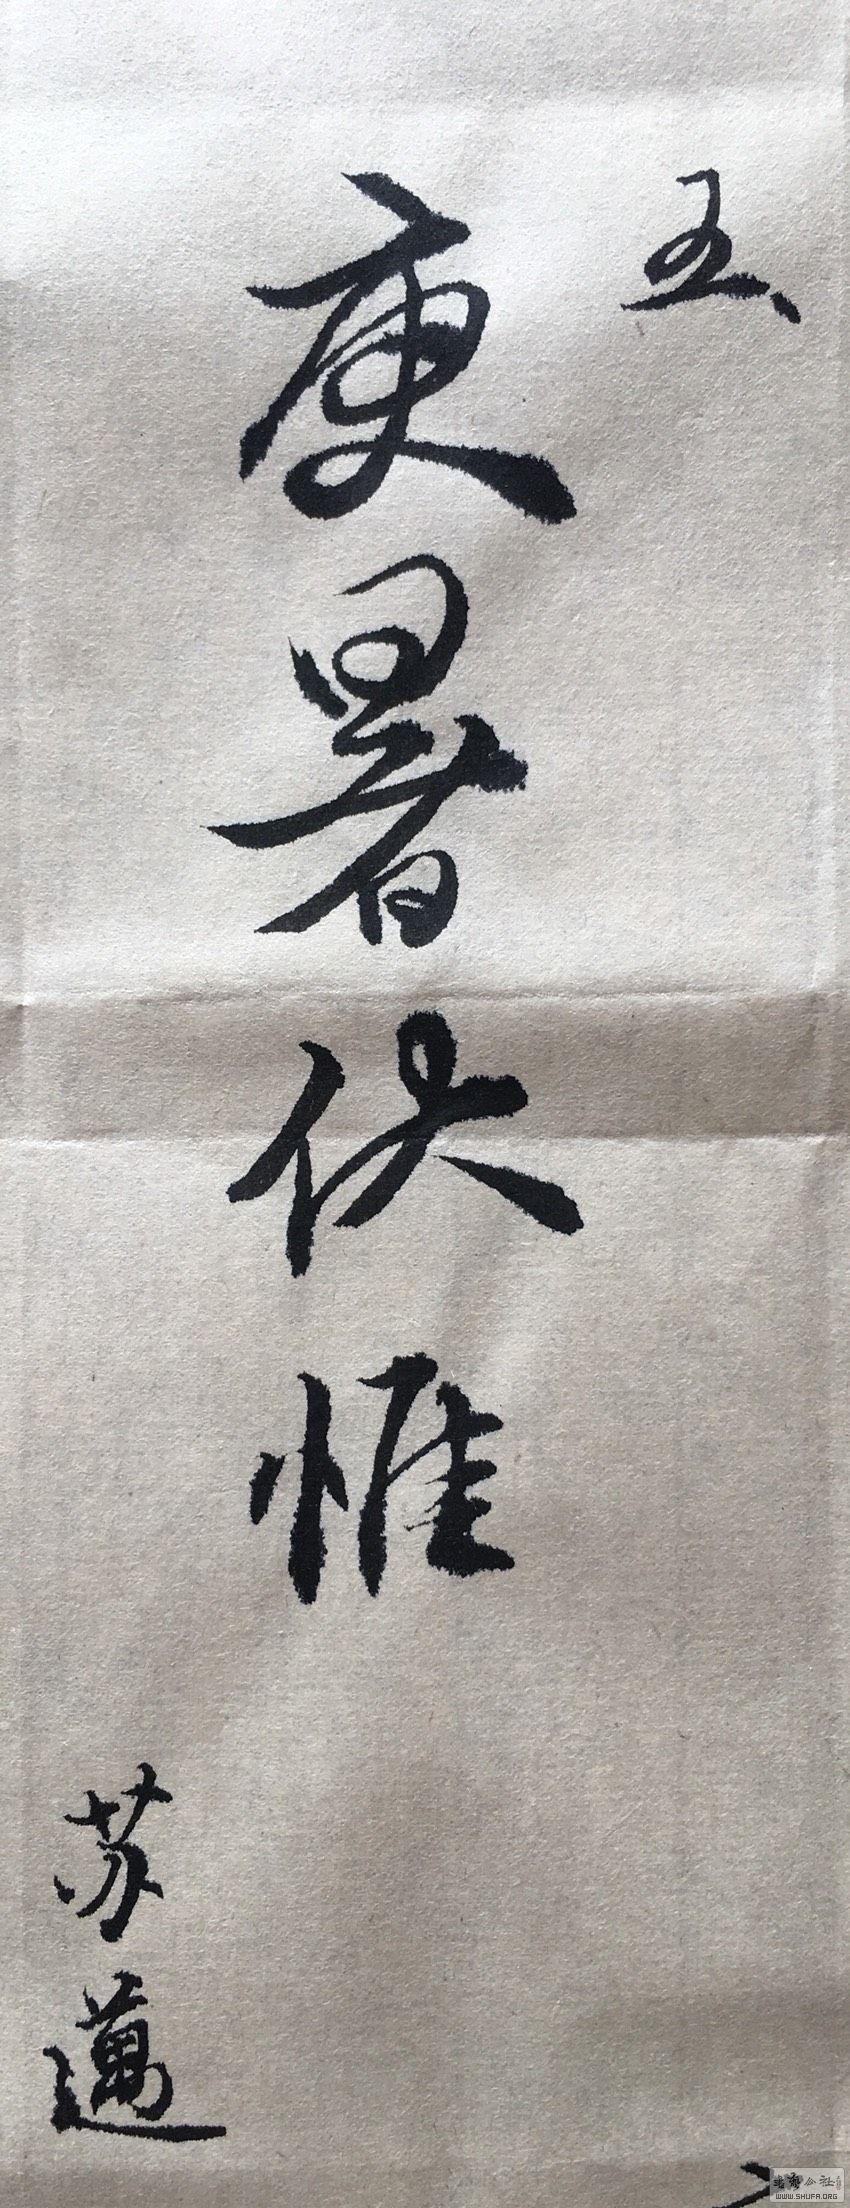 五、
庚暑伏惟
苏邁
书艺公社
WWW.SHUFA.ORG